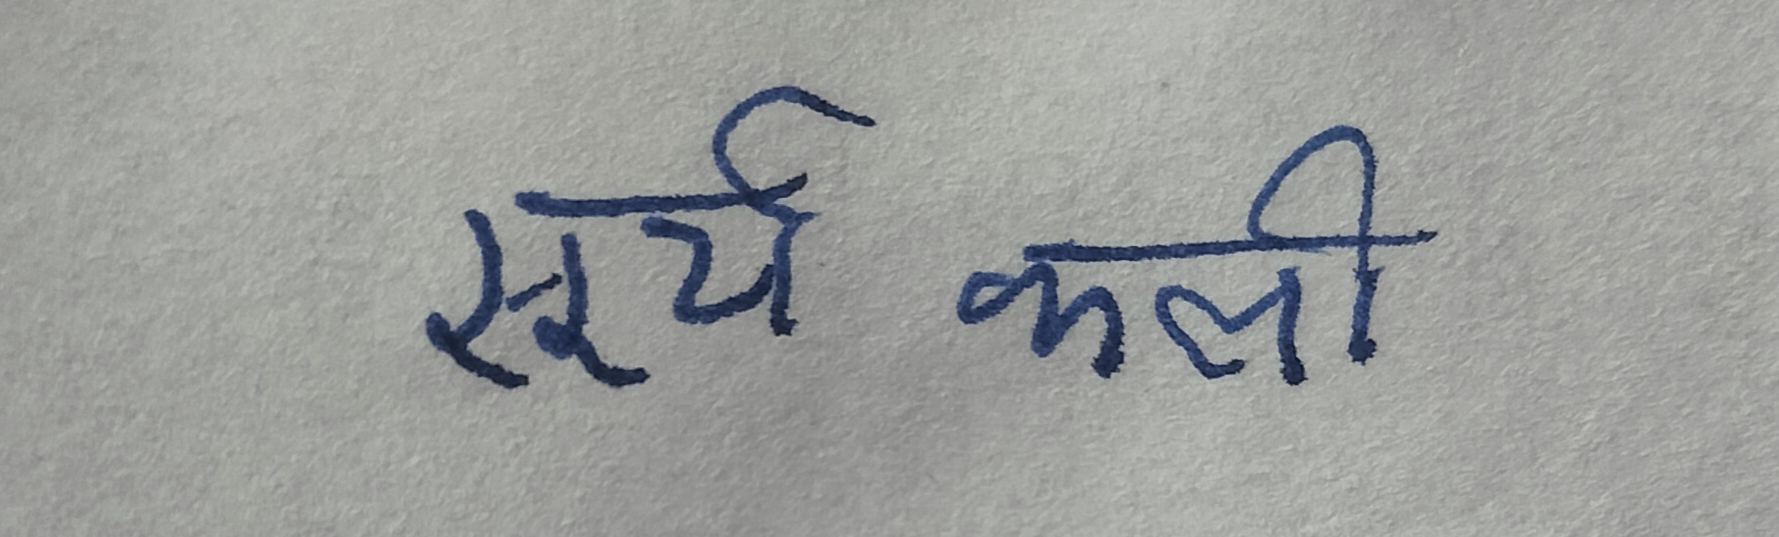 सूर्य कली